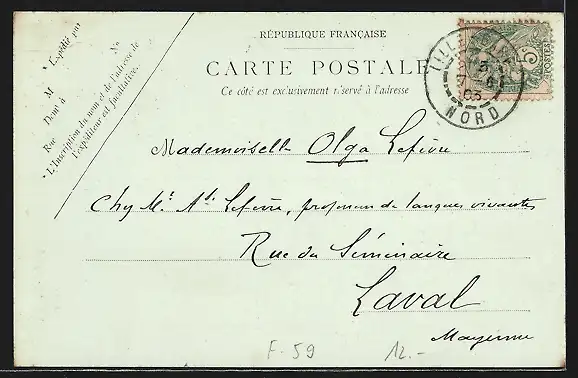 RÉPUBLIQUE FRANÇAISE
CARTE POSTALE
Ce côté est exclusivement réservé à l'adresse
* Expédié par
M
Dont à
Rue
No
* L'Inscription du nom et de l'adresse de
l'expéditeur est facultative.
LILLE
03
NORD
5
POSTES
Mademoiselle Olga Lefèvre
Chez Mr. Ad. Lefèvre, professeur de langues vivantes
Rue du Séminaire
Laval
Mayenne
F. 59
12.-